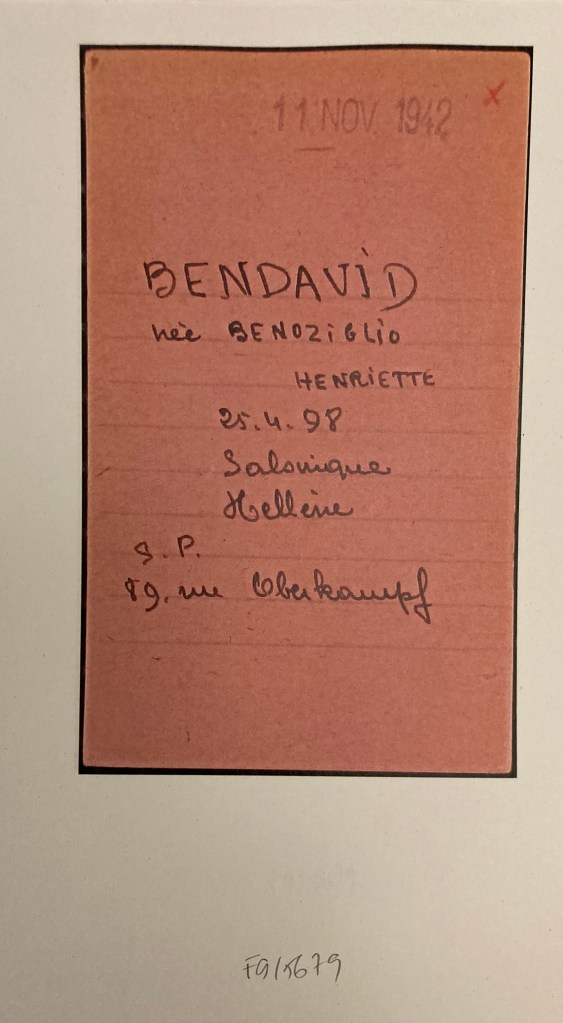 11 NOV. 1942
x
BENDAVID
née BENOZIGLIO
HENRIETTE
25.4.98
Salonique
Hellène
S.P.
89, rue Oberkampf
F9/5679